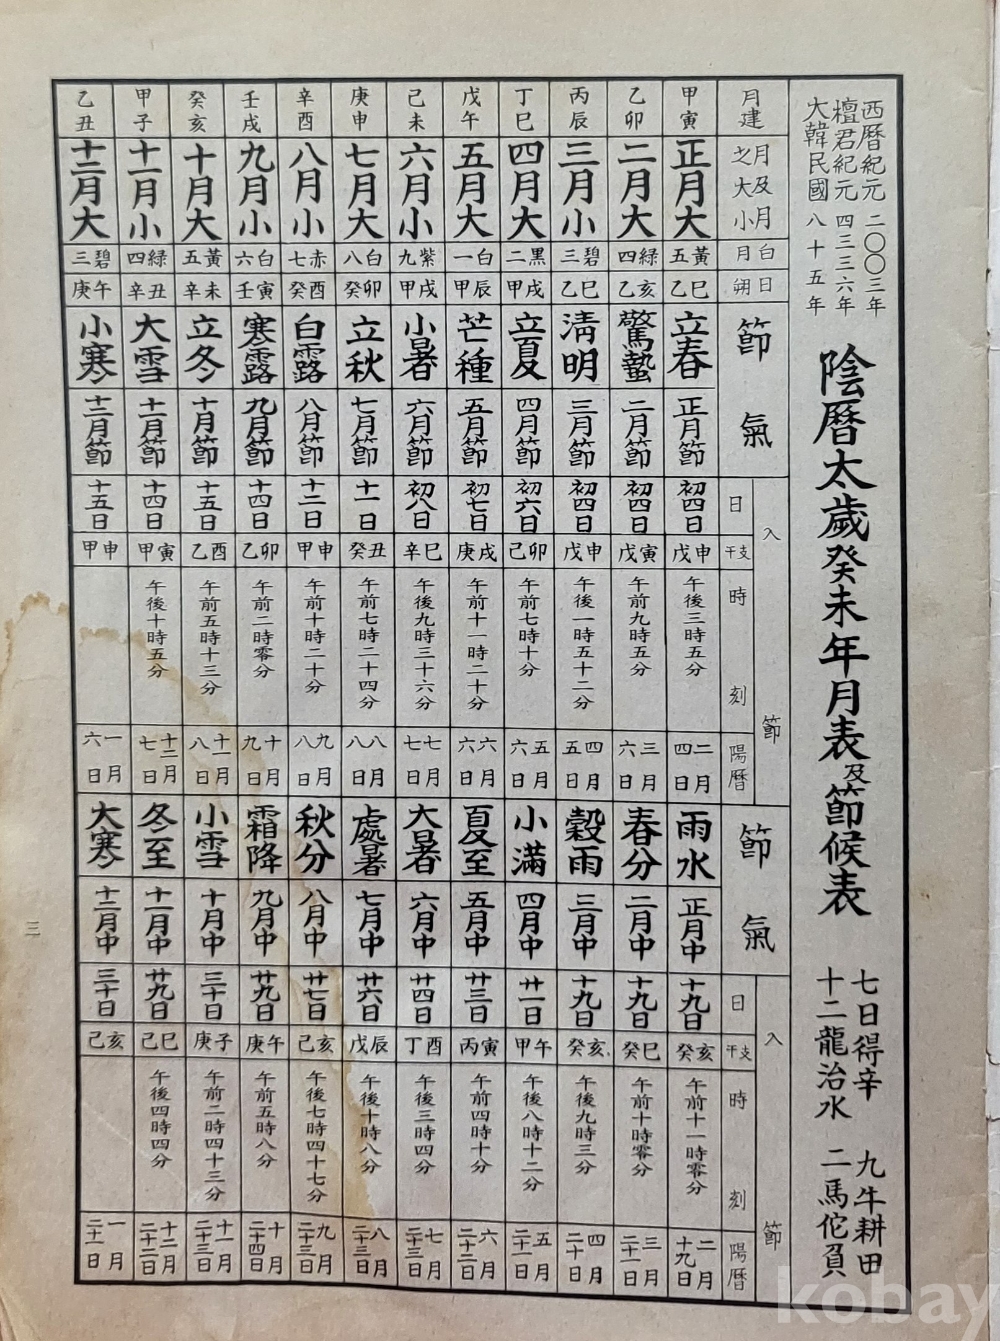 西曆紀元 二〇〇三年
檀君紀元 四三三六年
大韓民國 八十五年
陰曆太歲癸未年月表及節候表
七日得辛 九牛耕田
十二龍治水 二馬佗負
月建 甲寅 乙卯 丙辰 丁巳 戊午 己未 庚申 辛酉 壬戌 癸亥 甲子 乙丑
月及月之大小 正月大 二月大 三月小 四月大 五月大 六月小 七月大 八月小 九月小 十月大 十一月小 十二月大
月白 五黃 四綠 三碧 二黑 一白 九紫 八白 七赤 六白 五黃 四綠 三碧
朔日 乙巳 乙亥 乙巳 甲戌 甲辰 甲戌 癸卯 癸酉 壬寅 辛未 辛丑 庚午
節氣 立春 驚蟄 淸明 立夏 芒種 小暑 立秋 白露 寒露 立冬 大雪 小寒
正月節 二月節 三月節 四月節 五月節 六月節 七月節 八月節 九月節 十月節 十一月節 十二月節
入節
日 初四日 初四日 初四日 初六日 初七日 初八日 十一日 十二日 十四日 十五日 十四日 十五日
干支 戊申 戊寅 戊申 己卯 庚戌 辛巳 癸丑 甲申 乙卯 乙酉 甲寅 甲申
時刻 午後三時五分 午前九時五分 午後一時五十二分 午前七時十分 午前十一時二十分 午後九時三十六分 午前七時二十四分 午前十時二十分 午前二時零分 午前五時十三分 午後十時五分
陽曆 二月四日 三月六日 四月五日 五月六日 六月六日 七月七日 八月八日 九月八日 十月九日 十一月八日 十二月七日 一月六日
節氣 雨水 春分 穀雨 小滿 夏至 大暑 處暑 秋分 霜降 小雪 冬至 大寒
正月中 二月中 三月中 四月中 五月中 六月中 七月中 八月中 九月中 十月中 十一月中 十二月中
入節
日 十九日 十九日 十九日 廿一日 廿三日 廿四日 廿六日 廿七日 廿九日 三十日 廿九日 三十日
干支 癸亥 癸巳 癸亥 甲午 丙寅 丁酉 戊辰 己亥 庚午 庚子 己巳 己亥
時刻 午前十一時零分 午前十時零分 午後九時三分 午後八時十二分 午前四時十分 午後三時四分 午後十時八分 午後七時四十七分 午前五時八分 午前二時四十三分 午後四時四分
陽曆 二月十九日 三月二十一日 四月二十日 五月二十一日 六月二十二日 七月二十三日 八月二十三日 九月二十三日 十月二十四日 十一月二十三日 十二月二十二日 一月二十一日
三
kobay